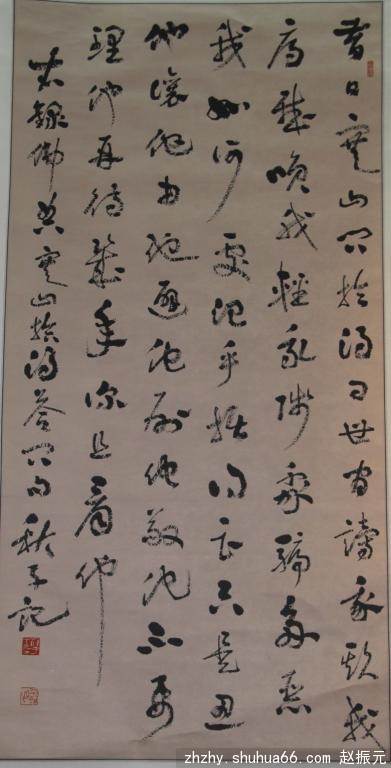 昔日寒山问拾得曰世间谤我欺我
辱我笑我轻我贱我骗我恶
我如何处治乎拾得曰只是忍
他让他由他避他耐他敬他不要
理他再待几年你且看他
右録佛典寒山拾得答问句 记
zhzhy.shuhua66.com 赵振元